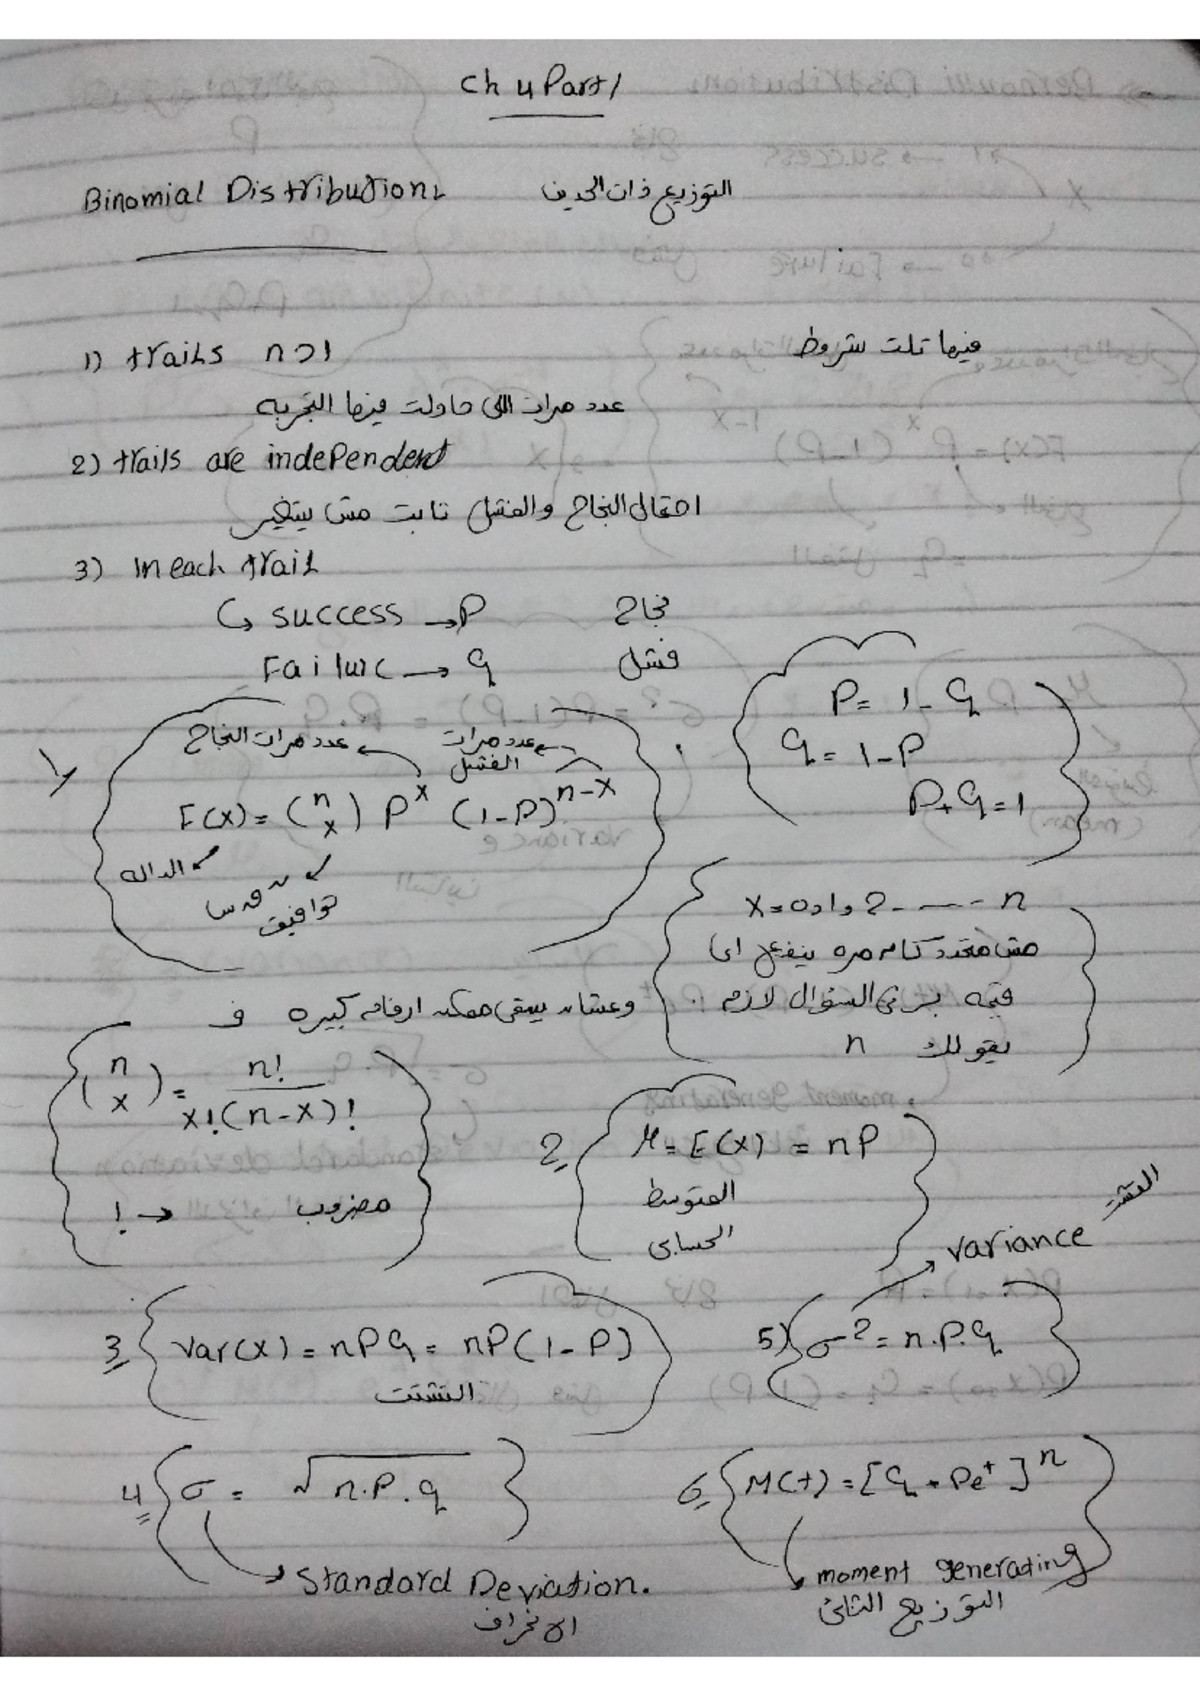 Ch 4 Part 1
Binomial Distribution: التوزيع ذات الحدين
1) trails n>1 فيها تلت شروط
عدد مرات اللى حاولت فيها التجربه
2) trails are independent
احتمال النجاح والفشل ثابت مش بيتغير
3) In each trail
↳ success → P نجاح
Failure → q فشل
P = 1 - q
q = 1 - P
P + q = 1
1)
عدد مرات النجاح عدد مرات الفشل
F(x) = (n x) P^x (1-P)^{n-x}
الداله
توافيق
x = 0, 1, 2 ---- n
مش محدد كام مره ينفع اى
قيمه بس فى السؤال لازم
يقولك n
وعشان يبقى ممكن ارقام كبيره ف
(n x) = n! / x!(n-x)!
! → مضروب
2) μ = E(x) = nP
المتوسط
الحسابى
3) Var(x) = nPq = nP(1-P)
التشتت
5) σ² = n.P.q
variance التشتت
4) σ = √n.P.q
Standard Deviation.
الانحراف
6) M(t) = [q + Pe^t]^n
moment generating
التوزيع الثانى